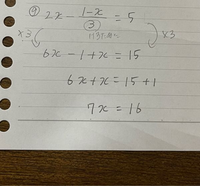 ④ 2x - (1-x)/3 = 5
×3 ×3
6x - 1 + x = 15
6x + x = 15 + 1
7x = 16